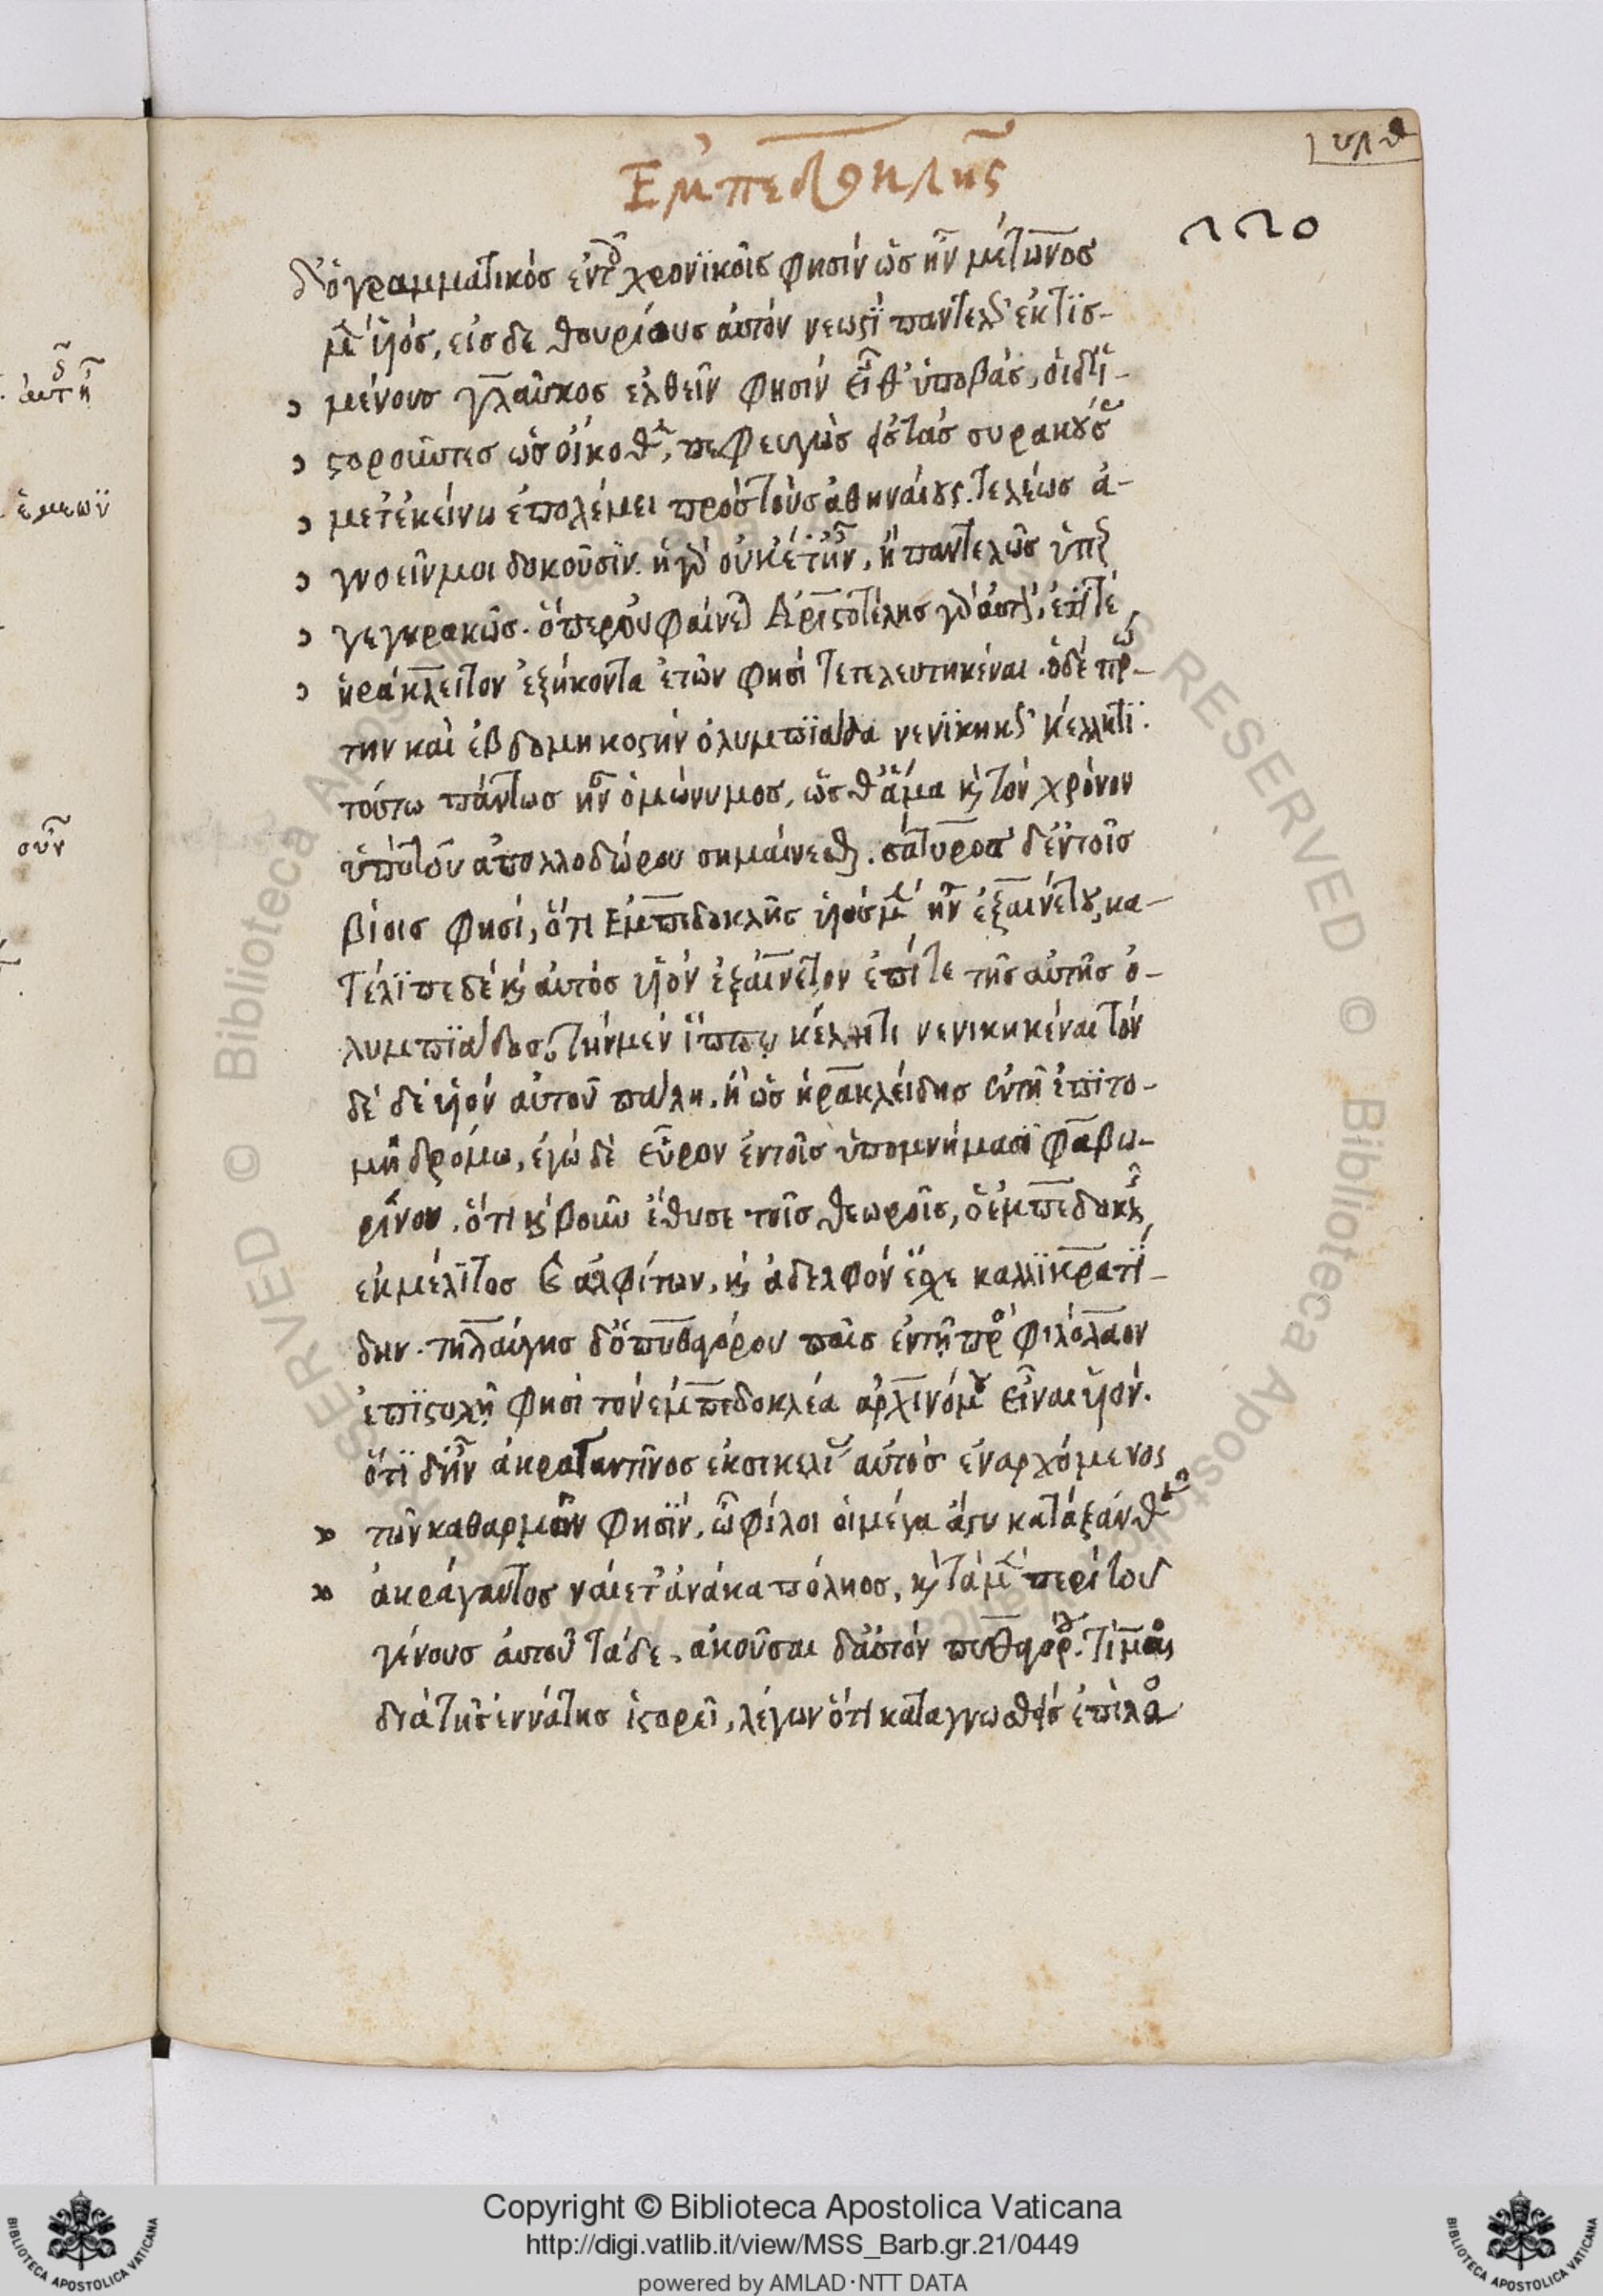 υλθ
Ἐμπεδοκλῆς
220
δ' ὁ γραμματικὸς ἐν τοῖς χρονϊκοῖς φησὶν ὡς ἦν μέτωνος
μὲν ὑιός, εἰς δὲ θουρίους αὐτὸν νεωστὶ παντελῶς ἐκτϊσ-
μένους γλαῦκος ἐλθεῖν φησίν εἶθ' ὑποβάς, οἱ δ' ἱ-
στοροῦντες ὡς οἴκοθεν, πεφευγὼς εἰς τὰς συρακούσας
μετ' ἐκείνω ἐπολέμει πρὸς τοὺς ἀθηναίους. τελέως ἀ-
γνοεῖν μοι δοκοῦσϊν. ἢ γὰρ οὐκέτ' ἦν, ἢ παντελῶς ὑπερ
γεγηρακῶς. ὅπερ οὐ φαίνεται Ἀριστοτέλης γὰρ αὐτὸν, ἔτι τέ
ἡράκλειτον ἑξήκοντα ἐτῶν φησὶ τετελευτηκέναι. ὁ δὲ πρώ-
την καὶ ἑβδομηκοστὴν ὀλυμπϊάδα νενϊκηκὼς κέλλητϊ.
τούτω πάντως ἦν ὁμώνυμος, ὥς θ' ἅμα καὶ τὸν χρόνον
ὑπὸ τοῦ ἀπολλοδώρου σημαίνεσθαι. σάτυρος δ' ἐν τοῖς
βίοις φησί, ὅτι Ἐμπεδοκλῆς ὑιὸς μὲν ἦν ἐξαινέτου, κα-
τέλϊπε δὲ καὶ αὐτὸς ὑιὸν ἐξαίνετον ἐπί τε τῆς αὐτῆς ὀ-
λυμπϊάδος, τὴν μὲν ἵππῳ κέλητι νενικηκέναι τὸν
δὲ δὲ ὑιὸν αὐτοῦ πάλη. ἢ ὡς ἡρακλείδης ἐν τῇ ἐπϊτο-
μῇ δρόμω, ἐγὼ δὲ εὗρον ἐν τοῖς ὑπομνήμασϊ φαβω-
ρίνου. ὅτι καὶ βοῦν ἔθυσε τοῖς θεωροῖς, ὁ ἐμπεδοκλῆς
ἐκ μέλιτος καὶ ἀλφίτων, καὶ ἀδελφὸν ἔσχε καλλϊκρατί-
δην. τηλαύγης δ' ὁ πυθαγόρου παῖς ἐν τῇ πρὸς φιλόλαον
ἐπϊστολῇ φησὶ τὸν ἐμπεδοκλέα ἀρχινόμου εἶναι ὑιόν.
ὅτϊ δ' ἦν ἀκραγαντῖνος ἐκ σικελίας αὐτὸς ἐναρχόμενος
τῶν καθαρμῶν φησϊν, ὦ φίλοι οἱ μέγα ἄστυ κατὰ ξάνθου
ἀκράγαντος ναίετ' ἀνάκα πόληος, καὶ τὰ μὲν περὶ τοῦ
γένους αὐτοῦ τάδε, ἀκοῦσαι δ' αὐτὸν πυθαγόρου. τίμαιος
διὰ τῆς ἐννάτης ἱστορεῖ, λέγων ὅτι καταγνωσθεὶς ἐπὶ λο
αὐτὴ
ἐμεωϋ
οὖν
Copyright © Biblioteca Apostolica Vaticana
http://digi.vatlib.it/view/MSS_Barb.gr.21/0449
powered by AMLAD·NTT DATA